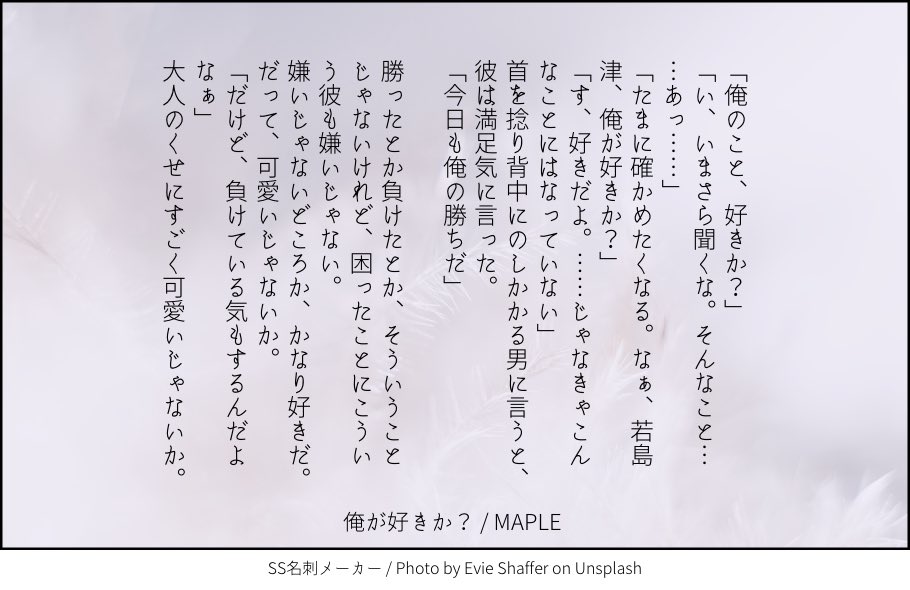 「俺のこと、好きか？」
「い、いまさら聞くな。そんなこと…
…あっ……」
「たまに確かめたくなる。なぁ、若島
津、俺が好きか？」
「す、好きだよ。……じゃなきゃこん
なことにはなっていない」
首を捻り背中にのしかかる男に言うと、
彼は満足気に言った。
「今日も俺の勝ちだ」
勝ったとか負けたとか、そういうこと
じゃないけれど、困ったことにこうい
う彼も嫌いじゃない。
嫌いじゃないどころか、かなり好きだ。
だって、可愛いじゃないか。
「だけど、負けている気もするんだよ
なぁ」
大人のくせにすごく可愛いじゃないか。
俺が好きか？ / MAPLE
SS名刺メーカー / Photo by Evie Shaffer on Unsplash